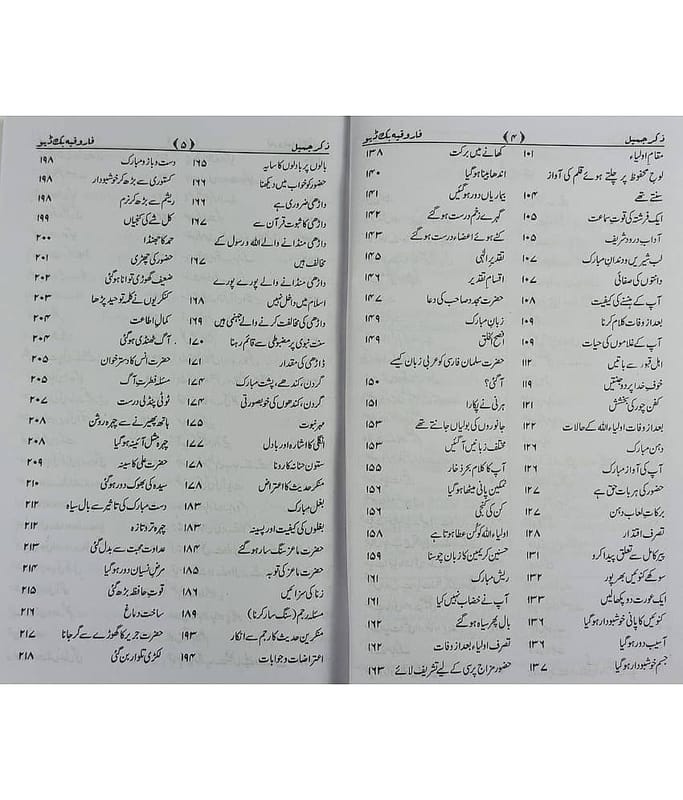 ذکر جمیل (۴) فاروقیہ بک ڈپو
مقام اولیاء ۱۰۱
لوح محفوظ پر چلتے ہوئے قلم کی آواز
سنتے تھے ۱۰۴
ایک فرشتہ کی قوت سماعت ۱۰۵
آداب درود شریف ۱۰۵
لب شیریں و دندان مبارک ۱۰۷
دانتوں کی صفائی ۱۰۷
آپ کے ہنسنے کی کیفیت ۱۰۸
بعد از وفات کلام کرنا ۱۰۹
آپ کے غلاموں کی حیات ۱۰۹
اہل قبور سے باتیں ۱۱۲
خوف خدا پر دو جنتیں ۱۱۹
کفن چور کی بخشش ۱۲۱
بعد از وفات اولیاء اللہ کے حالات ۱۲۲
دہن مبارک ۱۲۶
آپ کی آواز مبارک ۱۲۶
حضور کی ہر بات حق ہے ۱۲۷
برکات لعاب دہن ۱۲۷
تصرف اقتدار ۱۲۸
پیر کامل سے تعلق پیدا کرو ۱۳۱
سوکھے کنوئیں بھرپور ۱۳۲
ایک عورت دو پکھالیں ۱۳۳
کنوئیں کا پانی خوشبودار ہو گیا ۱۳۶
آسیب دور ہو گیا ۱۳۶
جسم خوشبودار ہو گیا ۱۳۷
کھانے میں برکت ۱۳۸
اندھا بینا ہو گیا ۱۴۰
بیماریاں دور ہو گئیں ۱۴۱
گہرے زخم درست ہو گئے ۱۴۲
کٹے ہوئے اعضاء درست ہو گئے ۱۴۳
تقدیر الٰہی ۱۴۵
اقسام تقدیر ۱۴۶
حضرت مجدد صاحب کی دعا ۱۴۷
زبان مبارک ۱۴۹
افصح الخلق ۱۴۹
حضرت سلمان فارسی کو عربی زبان کیسے
آ گئی؟ ۱۵۰
ہرنی نے پکارا ۱۵۱
جانوروں کی بولیاں جانتے تھے ۱۵۳
مختلف زبانیں آ گئیں ۱۵۳
آپ کا کلام بحر ذخار ۱۵۵
نمکین پانی میٹھا ہو گیا ۱۵۶
کن کی کنجی ۱۵۶
اولیاء اللہ کو کن عطا ہوتا ہے ۱۵۸
حسنین کریمین کا زبان چوسنا ۱۵۹
ریش مبارک ۱۶۱
آپ نے خضاب نہیں کیا ۱۶۱
بال پھر سیاہ ہو گئے ۱۶۲
تصرف اولیاء بعد از وفات ۱۶۲
حضور مزاج پرسی کے لیے تشریف لائے ۱۶۳
ذکر جمیل (۵) فاروقیہ بک ڈپو
بالوں پر بادلوں کا سایہ ۱۶۵
حضور کو خواب میں دیکھنا ۱۶۶
داڑھی ضروری ہے ۱۶۶
داڑھی کا ثبوت قرآن سے ۱۶۷
داڑھی منڈانے والے اللہ و رسول کے
مخالف ہیں ۱۶۷
داڑھی منڈانے والے پورے پورے
اسلام میں داخل نہیں ۱۶۸
داڑھی کی مخالفت کرنے والے جہنمی ہیں ۱۶۹
سنت نبوی پر مضبوطی سے قائم رہنا ۱۷۰
ڈاڑھی کی مقدار ۱۷۱
گردن، کندھے، پشت مبارک ۱۷۴
گردن، کندھوں کی خوبصورتی ۱۷۴
مہر نبوت ۱۷۵
انگلی کا اشارہ اور بادل ۱۷۷
ستون حنانہ کا رونا ۱۷۸
منکر حدیث کا اعتراض ۱۷۸
بغل مبارک ۱۸۳
بغلوں کی کیفیت اور پسینہ ۱۸۳
حضرت ماعز سنگسار ہو گئے ۱۸۴
حضرت ماعز کی توبہ ۱۸۵
زنا کی سزائیں ۱۸۶
مسئلہ رجم (سنگسار کرنا) ۱۸۹
منکرین حدیث کا رجم سے انکار ۱۹۳
اعتراضات و جوابات ۱۹۴
دست و بازو مبارک ۱۹۸
کستوری سے بڑھ کر خوشبودار ۱۹۸
ریشم سے بڑھ کر نرم ۱۹۸
کل شے کی کنجیاں ۱۹۹
حمد کا جھنڈا ۲۰۰
حضور کی چھڑی ۲۰۱
ضعیف گھوڑی توانا ہو گئی ۲۰۲
کنکریوں نے کلمہ توحید پڑھا ۲۰۳
کمال اطاعت ۲۰۴
آگ ٹھنڈی ہو گئی ۲۰۴
حضرت انس کا دسترخوان ۲۰۵
مسئلہ فطرت آگ ۲۰۵
ٹوٹی پنڈلی درست ۲۰۷
ہاتھ پھیرنے سے چہرہ روشن ۲۰۸
چہرہ مثل آئینہ ہو گیا ۲۰۸
حضرت علی کا سینہ ۲۰۹
سیدہ کی بھوک دور ہو گئی ۲۱۰
دست مبارک کی تاثیر سے بال سیاہ ۲۱۲
چہرہ تر و تازہ ۲۱۲
عداوت محبت سے بدل گئی ۲۱۳
مرض نسیان دور ہو گیا ۲۱۴
قوت حافظہ بڑھ گئی ۲۱۵
ساخت دماغ ۲۱۶
حضرت جریر کا گھوڑے سے گر جانا ۲۱۷
لکڑی تلوار بن گئی ۲۱۸